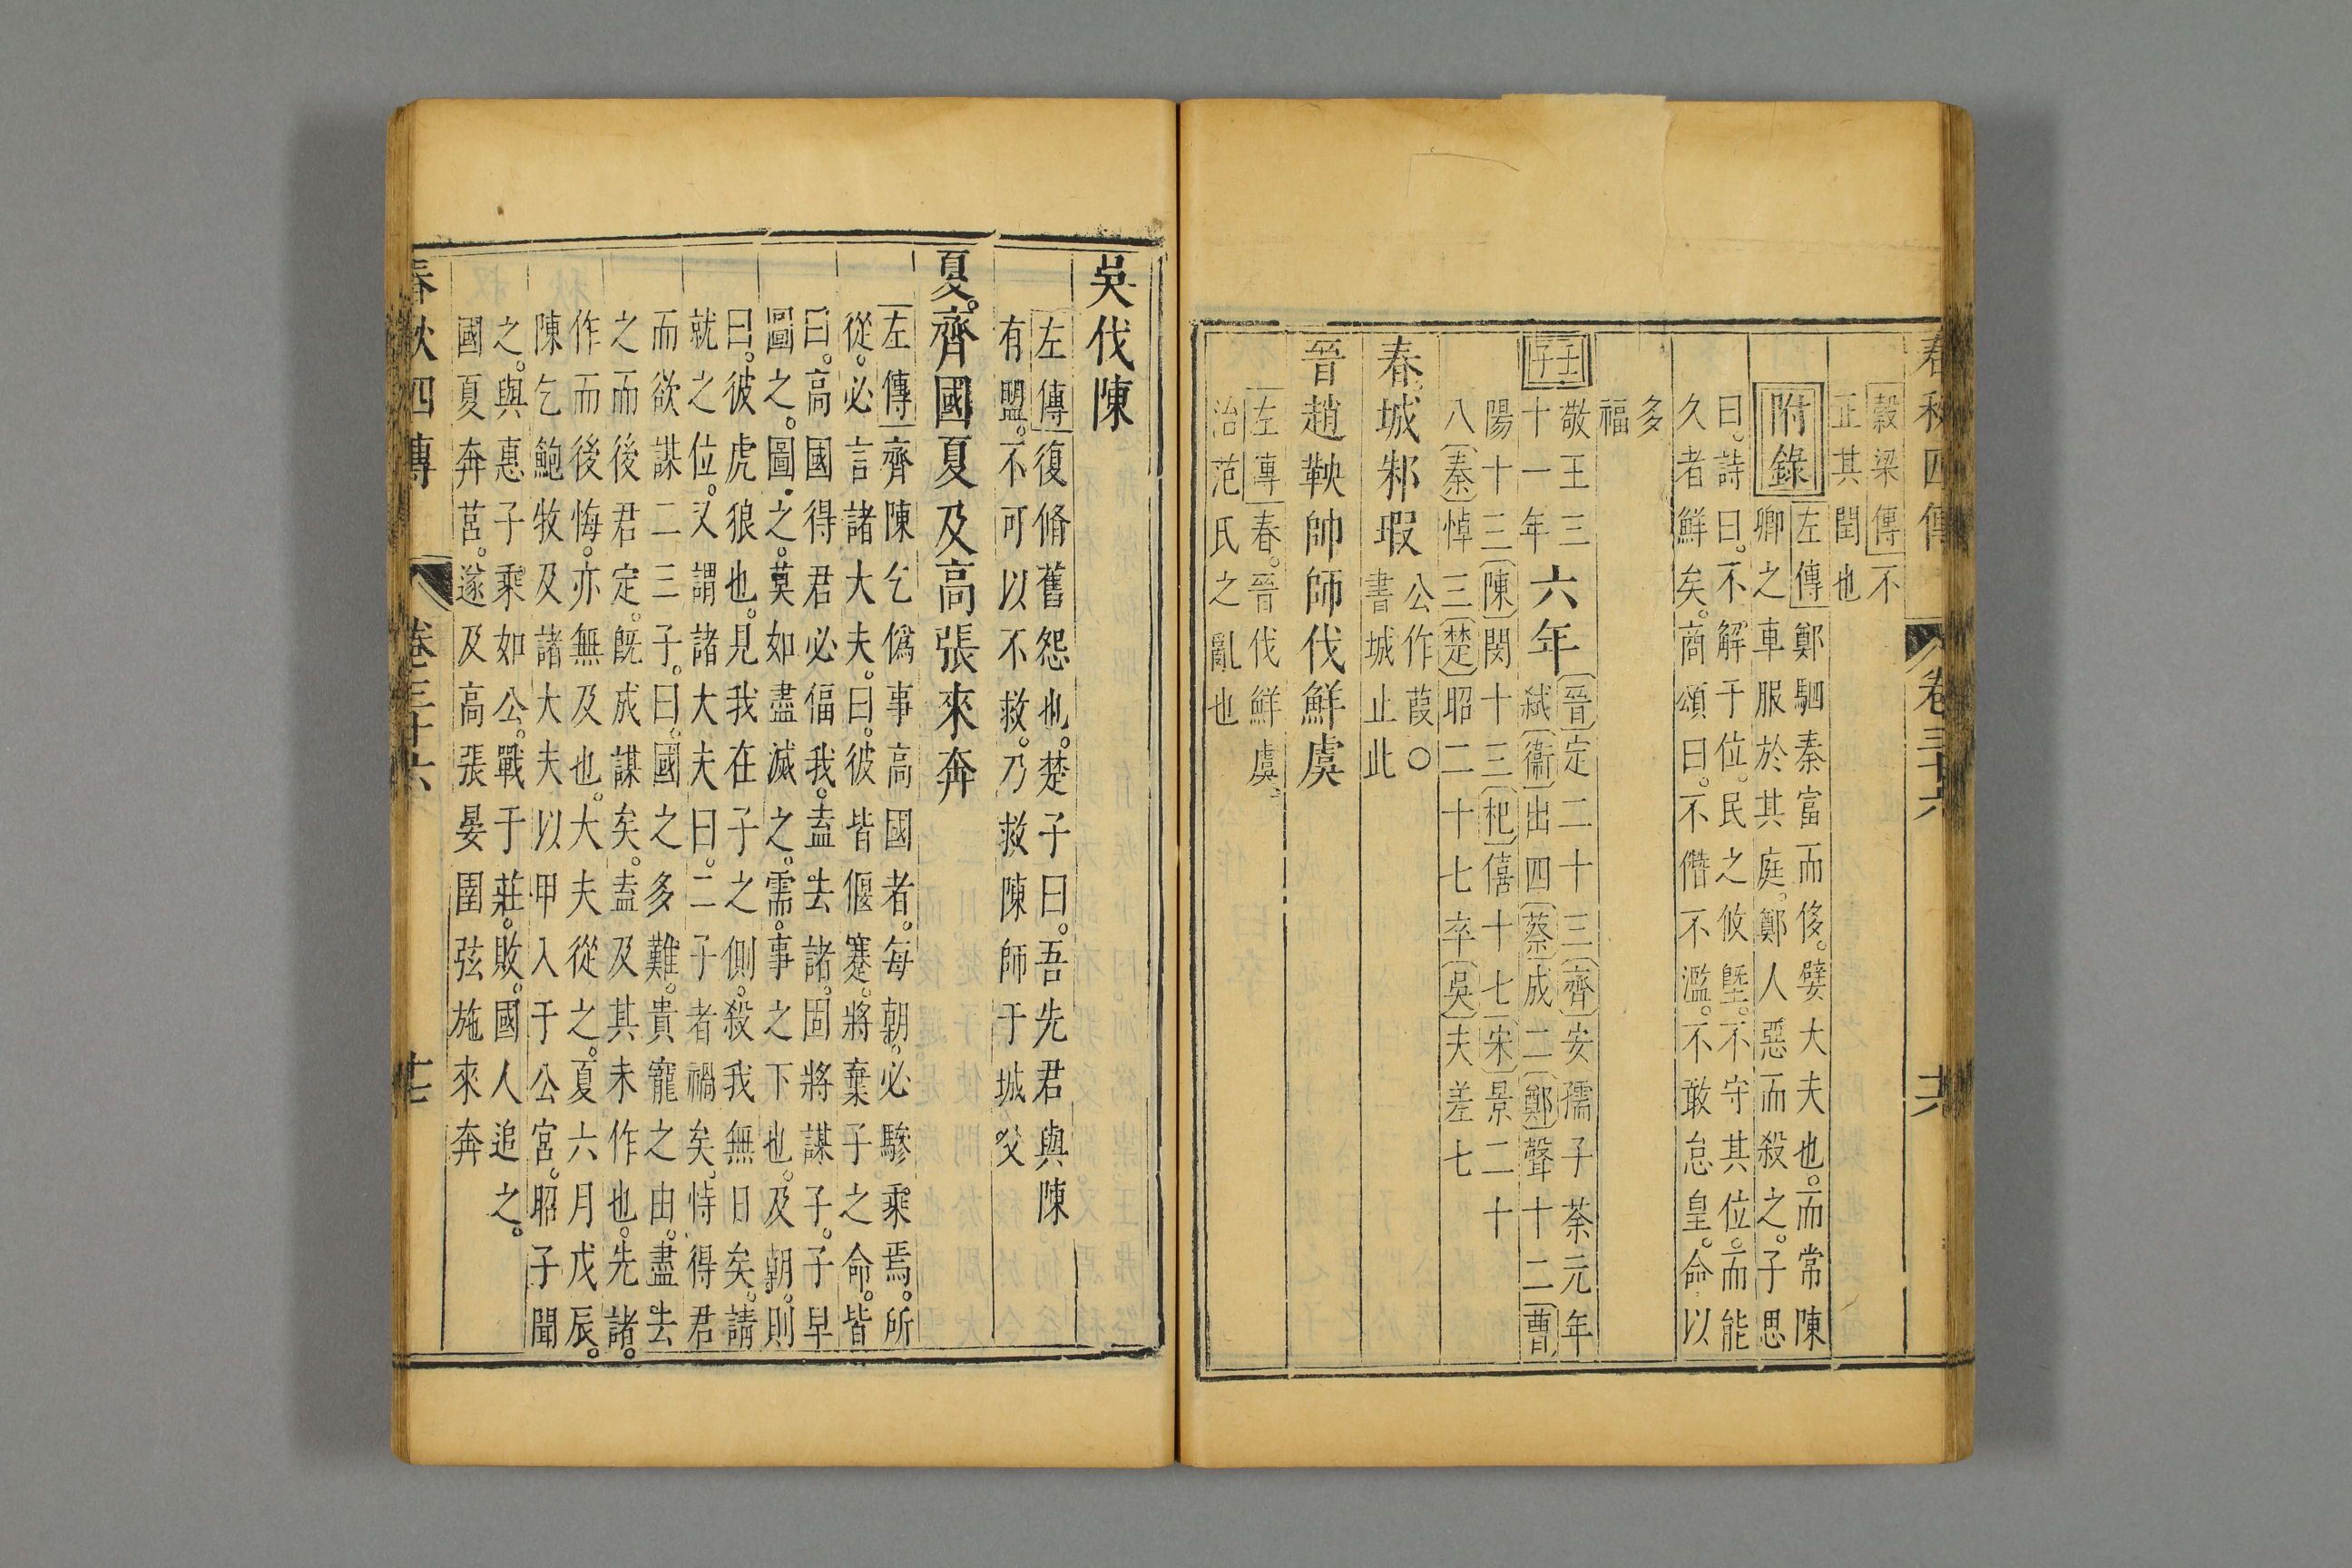 春秋四傳 卷三十六 十六
穀梁傳不
正其閏也
附錄
左傳鄭駟秦富而侈。嬖大夫也。而常陳
卿之車服於其庭。鄭人惡而殺之。子思
曰。詩曰。不解于位。民之攸塈。不守其位。而能
久者鮮矣。商頌曰。不僭不濫。不敢怠皇。命以
多
福
壬子
敬王三
十一年
六年
晉定二十三齊安孺子荼元年
衞出四蔡成二鄭聲十二曹
陽十三陳閔十三杞僖十七宋景二十
八秦悼三楚昭二十七卒吳夫差七
春。城邾瑕
公作葭○
書城止此
晉趙鞅帥師伐鮮虞
左傳春。晉伐鮮虞。
治范氏之亂也
吳伐陳
左傳復脩舊怨也。楚子曰。吾先君與陳
有盟。不可以不救。乃救陳師于城父
夏。齊國夏及高張來奔
左傳齊陳乞僞事高國者。每朝。必驂乘焉。所
從。必言諸大夫。曰。彼皆偃蹇。將棄子之命。皆
曰。高國得君必偪我。盍去諸。固將謀子。子早
圖之。圖之。莫如盡滅之。需。事之下也。及朝。則
曰。彼虎狼也。見我在子之側。殺我無日矣。請
就之位。又謂諸大夫曰。二子者禍矣。恃得君
而欲謀二三子。曰。國之多難。貴寵之由。盡去
之而後君定。旣成謀矣。盍及其未作也。先諸。
作而後悔。亦無及也。大夫從之。夏六月戊辰。
陳乞鮑牧及諸大夫以甲入于公宮。昭子聞
之。與惠子乘如公。戰于莊。敗。國人追之。
國夏奔莒。遂及高張晏圉弦施來奔
春秋四傳 卷三十六 十七